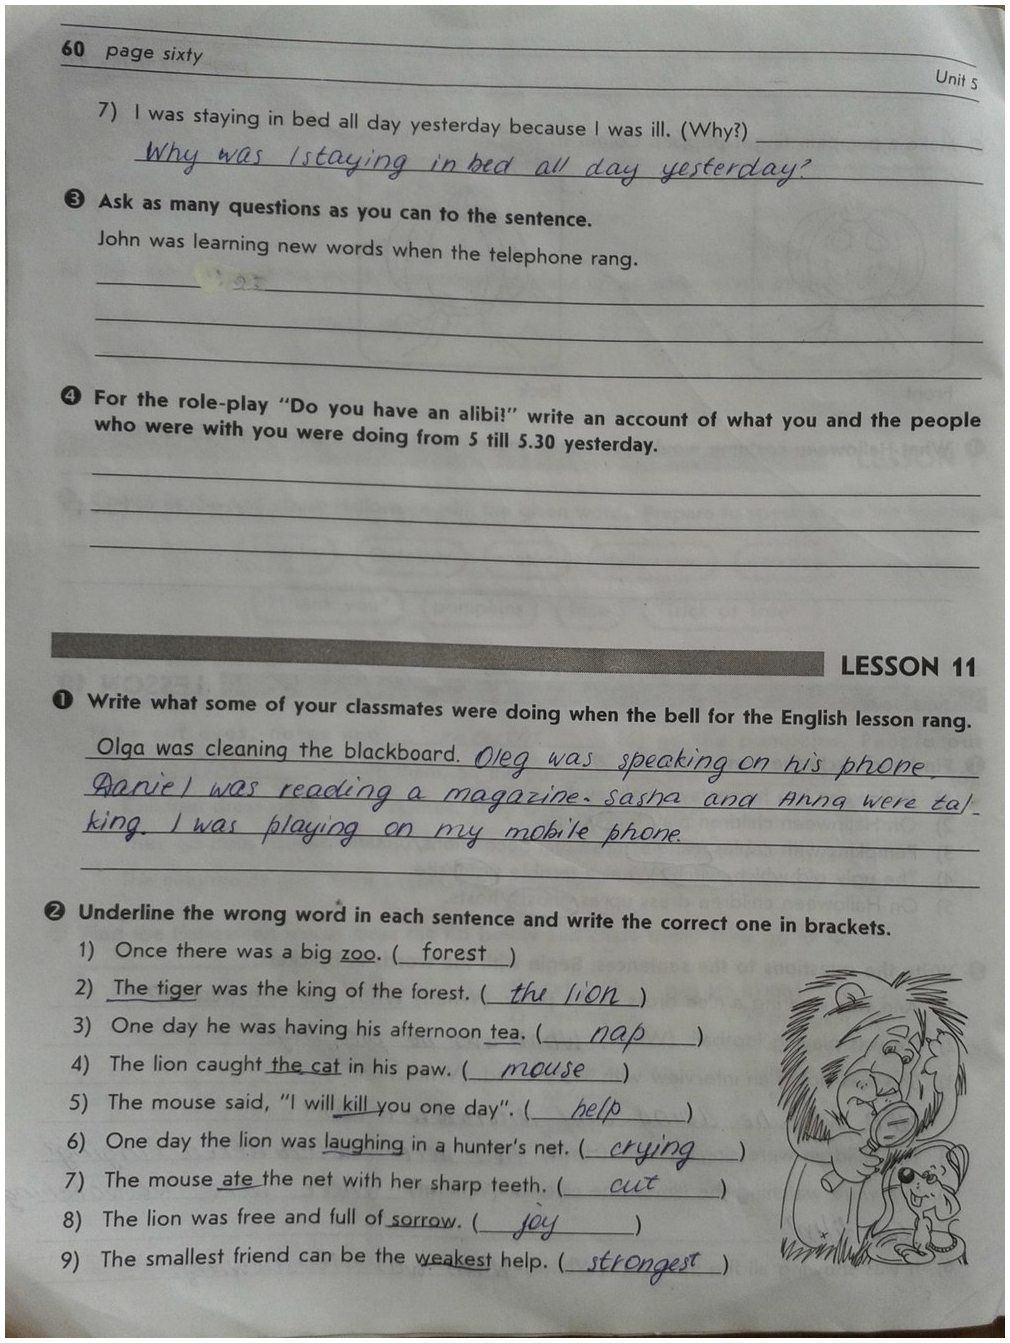 60 page sixty
Unit 5
7) I was staying in bed all day yesterday because I was ill. (Why?)
Why was I staying in bed all day yesterday?
3 Ask as many questions as you can to the sentence.
John was learning new words when the telephone rang.
4 For the role-play “Do you have an alibi?” write an account of what you and the people
who were with you were doing from 5 till 5.30 yesterday.
LESSON 11
1 Write what some of your classmates were doing when the bell for the English lesson rang.
Olga was cleaning the blackboard. Oleg was speaking on his phone.
Daniel was reading a magazine. Sasha and Anna were tal-
king. I was playing on my mobile phone.
2 Underline the wrong word in each sentence and write the correct one in brackets.
1) Once there was a big zoo. ( forest )
2) The tiger was the king of the forest. ( the lion )
3) One day he was having his afternoon tea. ( nap )
4) The lion caught the cat in his paw. ( mouse )
5) The mouse said, “I will kill you one day”. ( help )
6) One day the lion was laughing in a hunter's net. ( crying )
7) The mouse ate the net with her sharp teeth. ( cut )
8) The lion was free and full of sorrow. ( joy )
9) The smallest friend can be the weakest help. ( strongest )